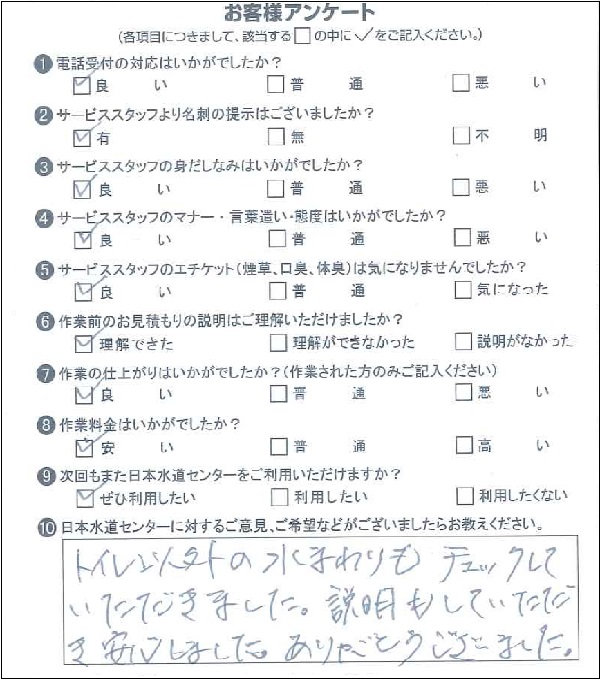 お客様アンケート
(各項目につきまして、該当する□の中に✓をご記入ください。)
① 電話受付の対応はいかがでしたか?
☑良い □普通 □悪い
② サービススタッフより名刺の提示はございましたか?
☑有 □無 □不明
③ サービススタッフの身だしなみはいかがでしたか?
☑良い □普通 □悪い
④ サービススタッフのマナー・言葉遣い・態度はいかがでしたか?
☑良い □普通 □悪い
⑤ サービススタッフのエチケット(煙草、口臭、体臭)は気になりませんでしたか?
☑良い □普通 □気になった
⑥ 作業前のお見積もりの説明はご理解いただけましたか?
☑理解できた □理解ができなかった □説明がなかった
⑦ 作業の仕上がりはいかがでしたか?(作業された方のみご記入ください)
☑良い □普通 □悪い
⑧ 作業料金はいかがでしたか?
☑安い □普通 □高い
⑨ 次回もまた日本水道センターをご利用いただけますか?
☑ぜひ利用したい □利用したい □利用したくない
⑩ 日本水道センターに対するご意見、ご希望などがございましたらお教えください。
トイレ以外の水まわりもチェックして
いただきました。説明もしていただ
き安心しました。ありがとうございました。